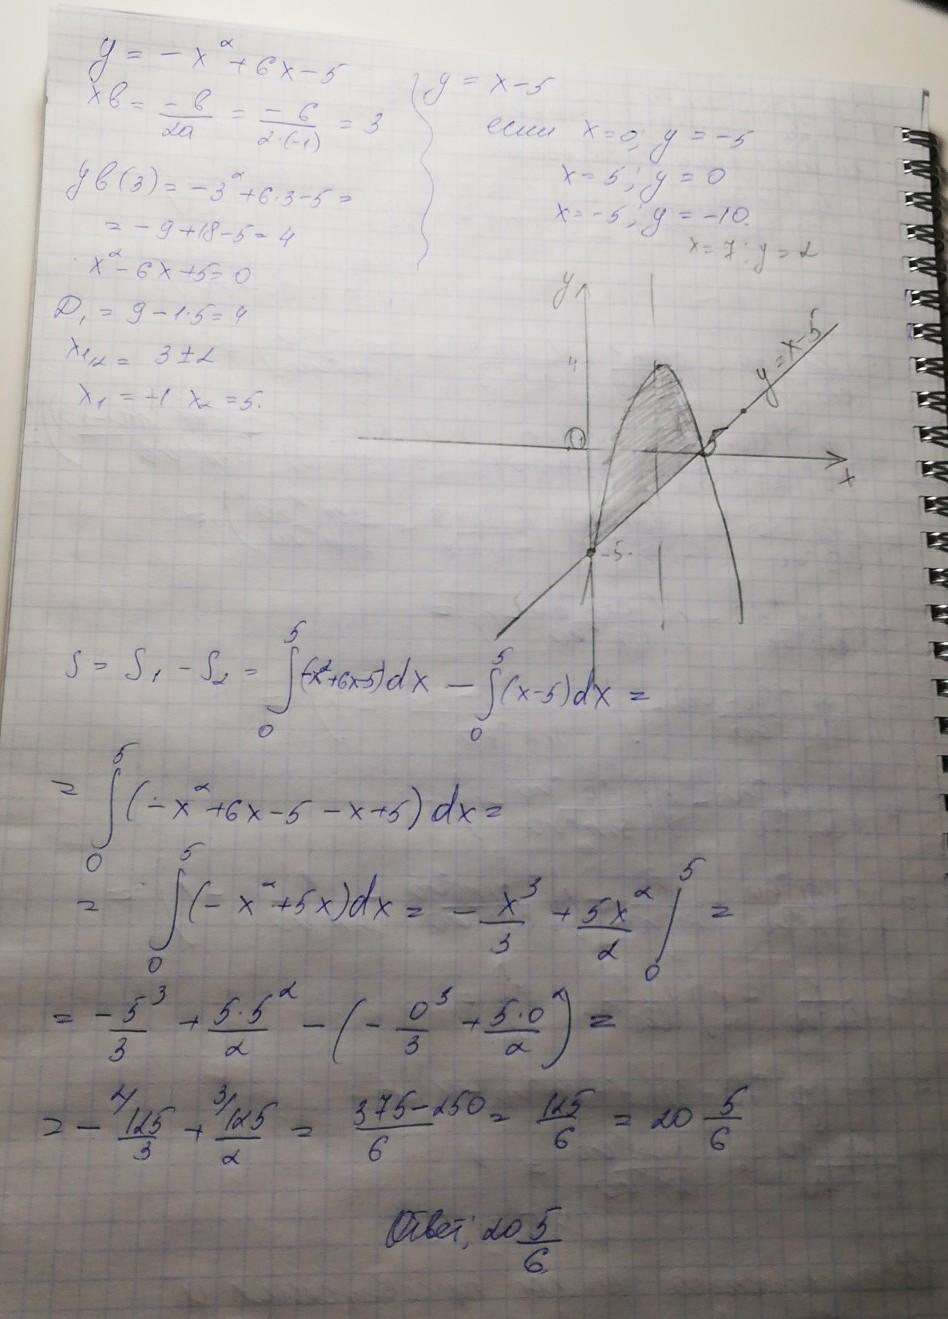 y = -x² + 6x - 5
xв = -b/2a = -6/2·(-1) = 3
yв(3) = -3² + 6·3 - 5 =
= -9 + 18 - 5 = 4
x² - 6x + 5 = 0
D₁ = 9 - 1·5 = 4
x₁,₂ = 3 ± 2
x₁ = +1 x₂ = 5.
y = x - 5
если x = 0; y = -5
x = 5; y = 0
x = -5; y = -10.
x = 7; y = 2
y
4
y = x - 5
0
5
x
-5
S = S₁ - S₂ = ∫₀⁵ (-x² + 6x - 5) dx - ∫₀⁵ (x - 5) dx =
= ∫₀⁵ (-x² + 6x - 5 - x + 5) dx =
= ∫₀⁵ (-x² + 5x) dx = -x³/3 + 5x²/2 |₀⁵ =
= -5³/3 + 5·5²/2 - (-0³/3 + 5·0²/2) =
= - ²⁄125/3 + ³⁄125/2 = 375-250/6 = 125/6 = 20 5/6
Ответ: 20 5/6